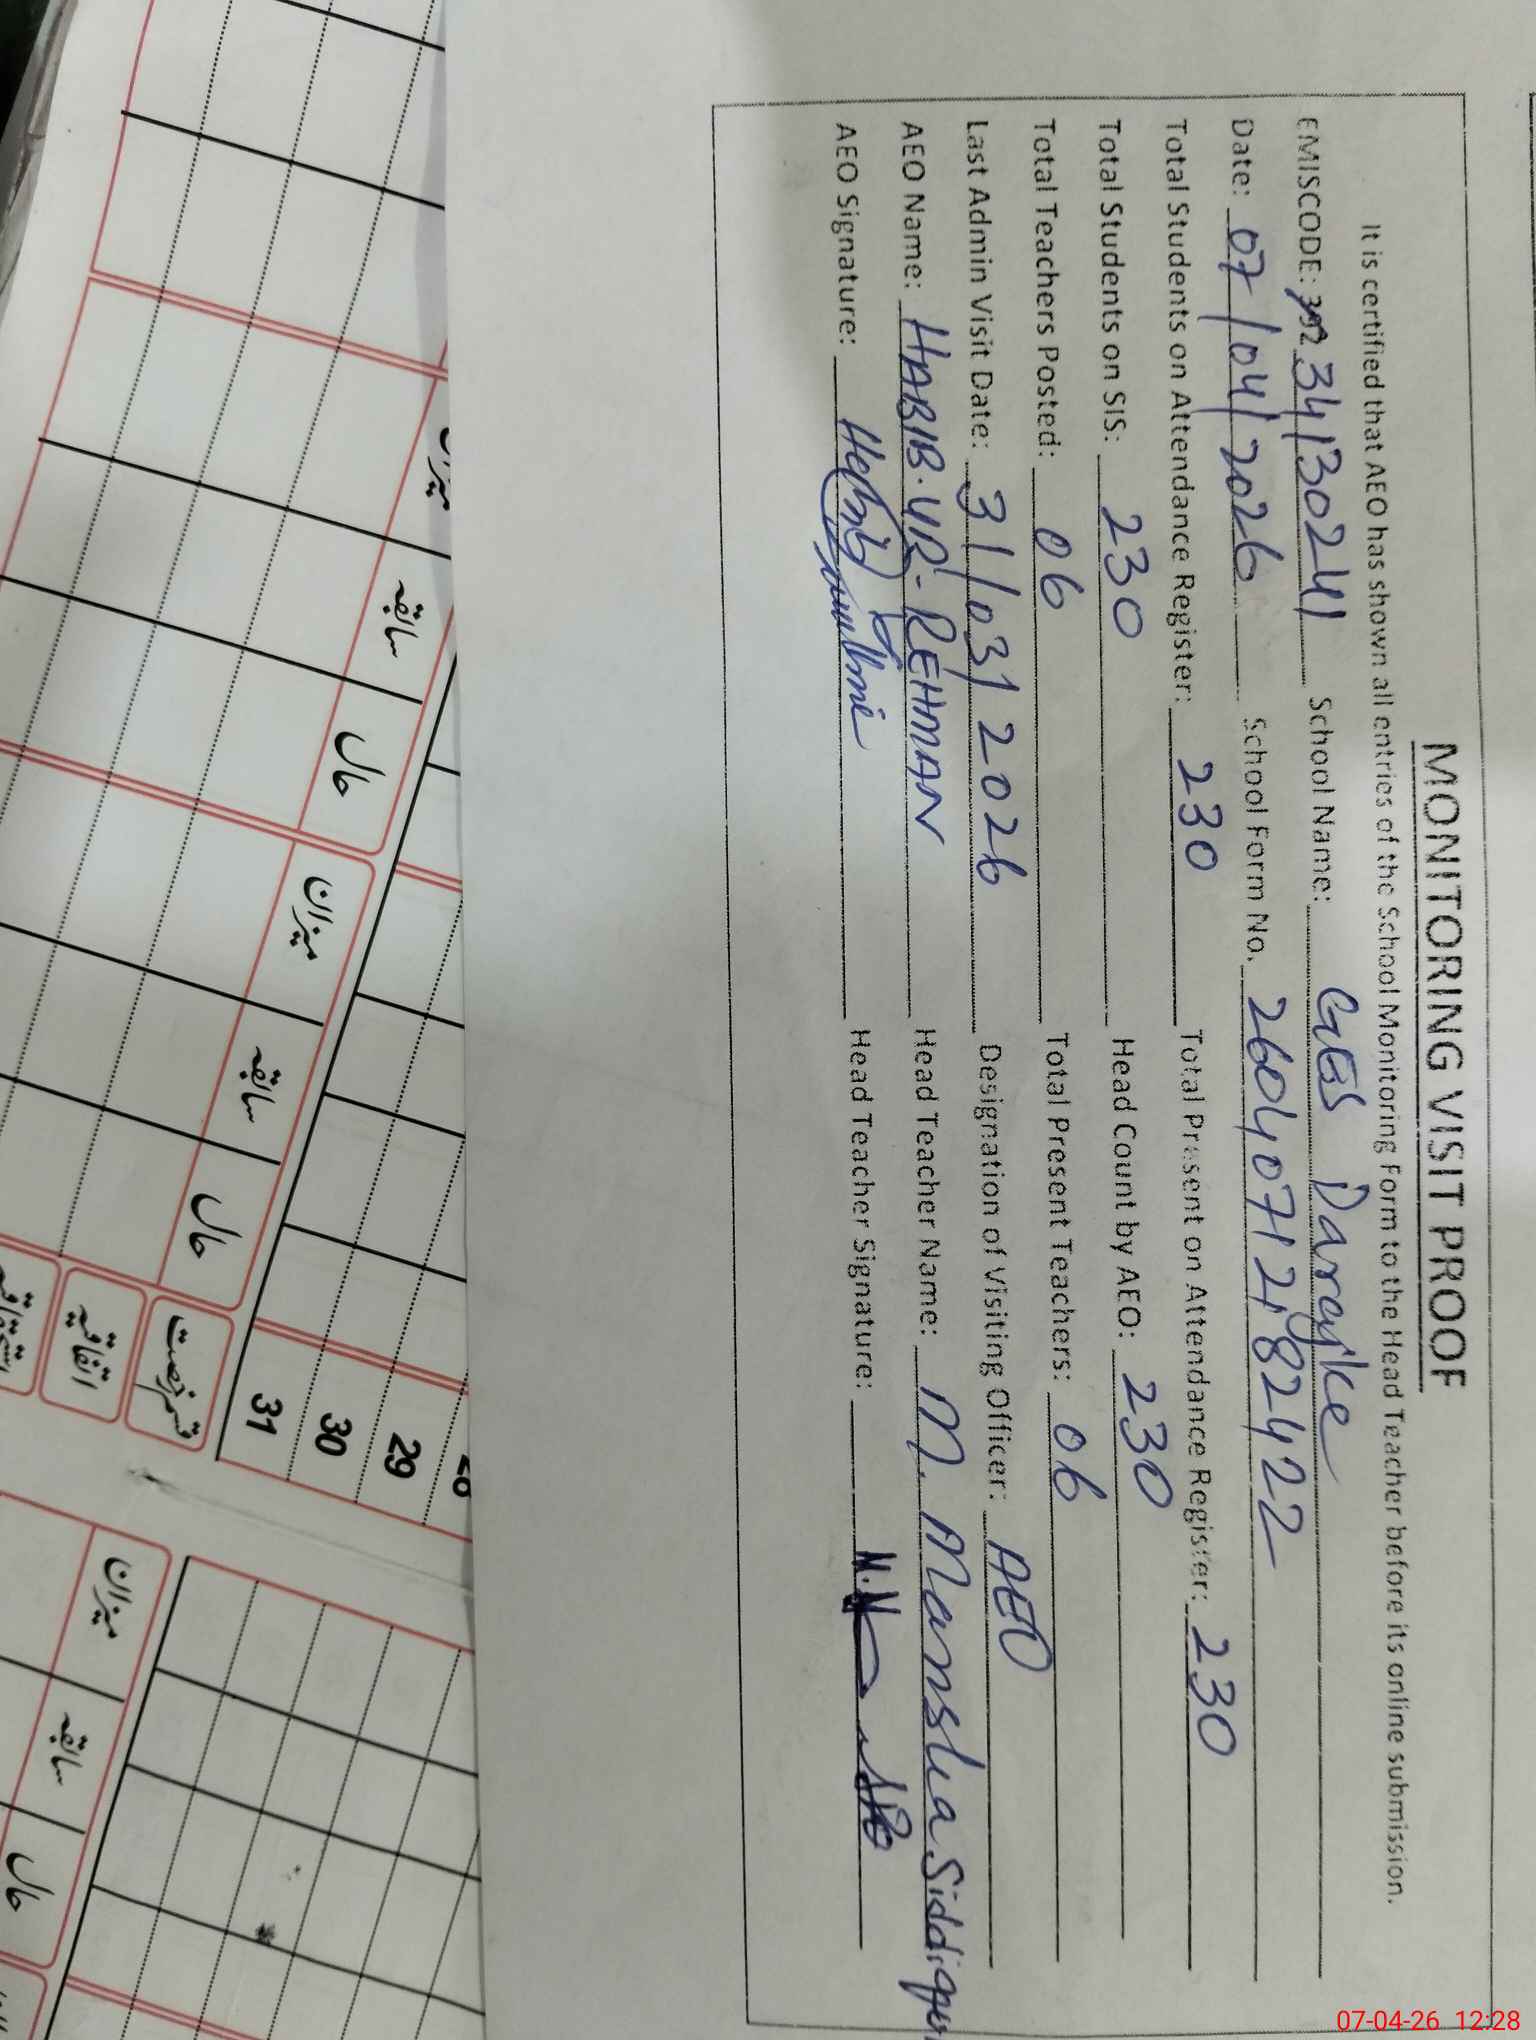 MONITORING VISIT PROOF
It is certified that AEO has shown all entries of the School Monitoring Form to the Head Teacher before its online submission.
EMISCODE: 34130241 School Name: GES
Date: 07/04/2026 School Form No. 26040712182422
Total Students on Attendance Register: 230 Total Present on Attendance Register: 230
Total Students on SIS: 230 Head Count by AEO: 230
Total Teachers Posted: 06 Total Present Teachers: 06
Last Admin Visit Date: 31/03/2026 Designation of Visiting Officer: AEO
AEO Name: HABIB-UR-REHMAN Head Teacher Name: M.
AEO Signature: Head Teacher Signature:
میزان
سابقہ
حال
میزان
سابقہ
حال
قسم رخصت
اتفاقیہ
29
30
31
میزان
سابقہ
حال
07-04-26 12:28